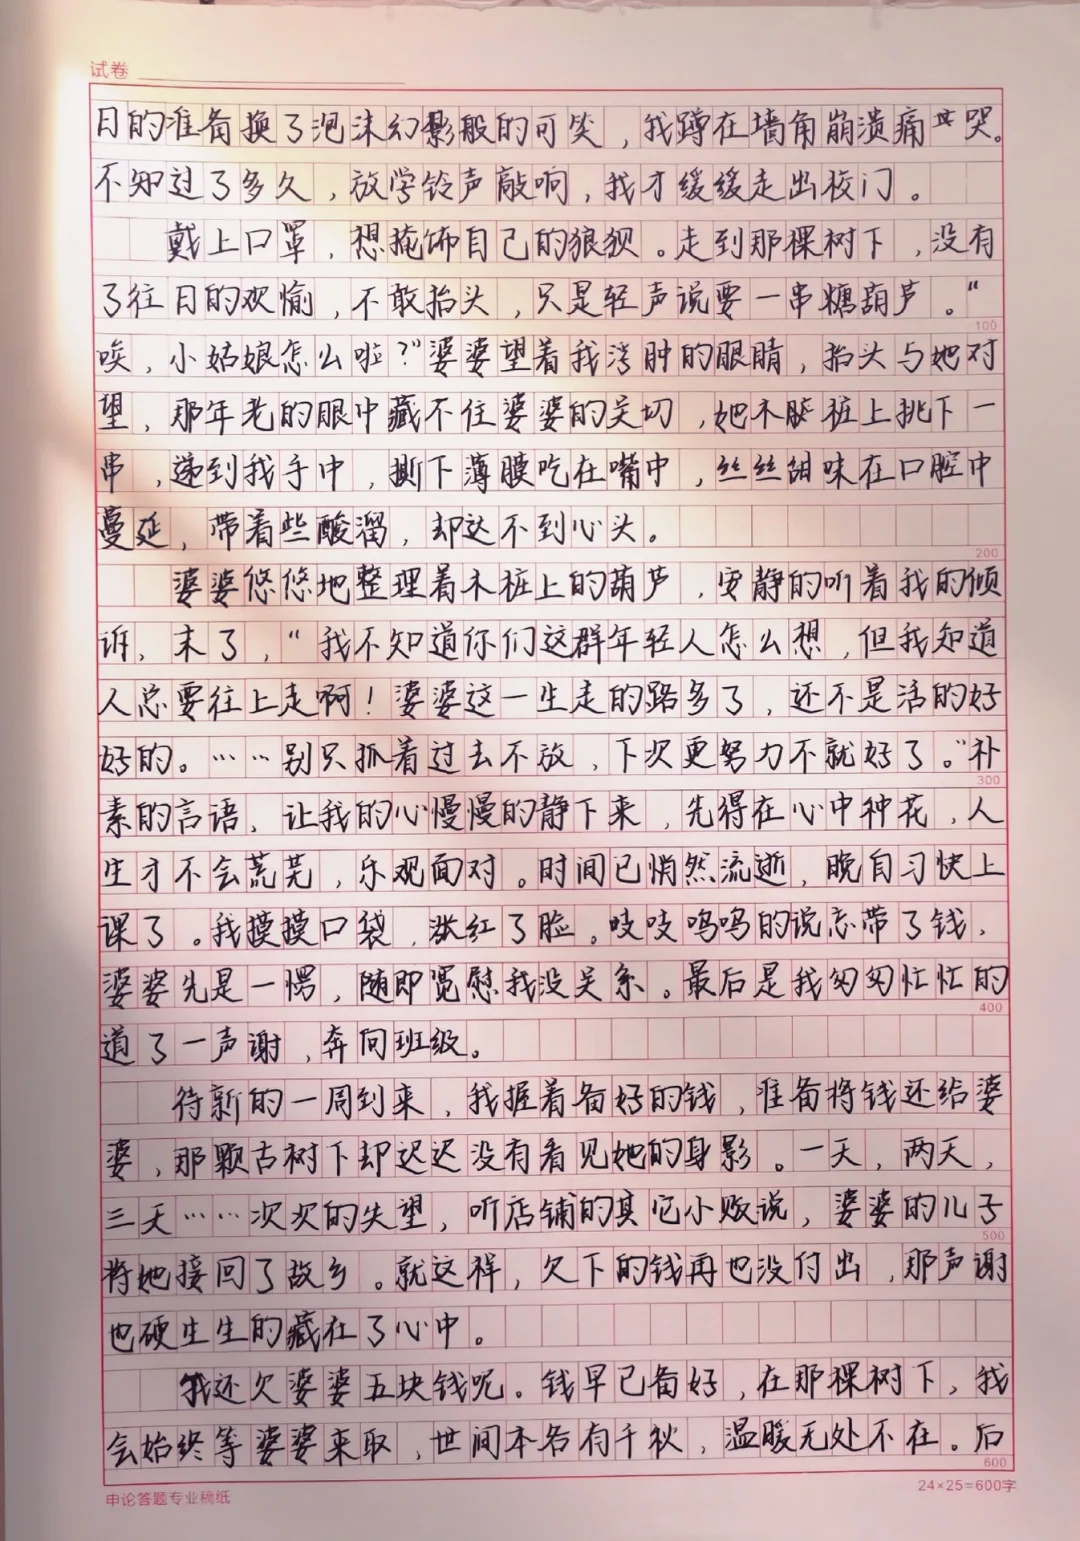 试卷
日的准备换了泡沫幻影般的可笑，我蹲在墙角崩溃痛哭。
不知过了多久，放学铃声敲响，我才缓缓走出校门。
戴上口罩，想掩饰自己的狼狈。走到那棵树下，没有
了往日的欢愉，不敢抬头，只是轻声说要一串糖葫芦。“
唉，小姑娘怎么啦？”婆婆望着我浮肿的眼睛，抬头与她对
望，那年老的眼中藏不住婆婆的关切，她木桩上挑下一
串，递到我手中，撕下薄膜吃在嘴中，丝丝甜味在口腔中
蔓延，带着些酸溜，却达不到心头。
100
200
婆婆悠悠地整理着木桩上的葫芦，安静的听着我的倾
诉，末了，“我不知道你们这群年轻人怎么想，但我知道
人总要往上走啊！婆婆这一生走的路多了，还不是活的好
好的。……别只抓着过去不放，下次更努力不就好了。”朴
300
素的言语，让我的心慢慢的静下来，先得在心中种花，人
生才不会荒芜，乐观面对。时间已悄然流逝，晚自习快上
课了。我摸摸口袋，涨红了脸。吱吱呜呜的说忘带了钱，
婆婆先是一愣，随即宽慰我没关系。最后是我匆匆忙忙的
400
道了一声谢，奔向班级。
待新的一周到来，我握着备好的钱，准备将钱还给婆
婆，那颗古树下却迟迟没有看见她的身影。一天，两天，
三天……次次的失望，听店铺的其它小贩说，婆婆的儿子
500
将她接回了故乡。就这样，欠下的钱再也没付出，那声谢
也硬生生的藏在了心中。
我还欠婆婆五块钱呢。钱早已备好，在那棵树下，我
会始终等婆婆来取，世间本各有千秋，温暖无处不在。后
600
申论答题专业稿纸
24×25=600字